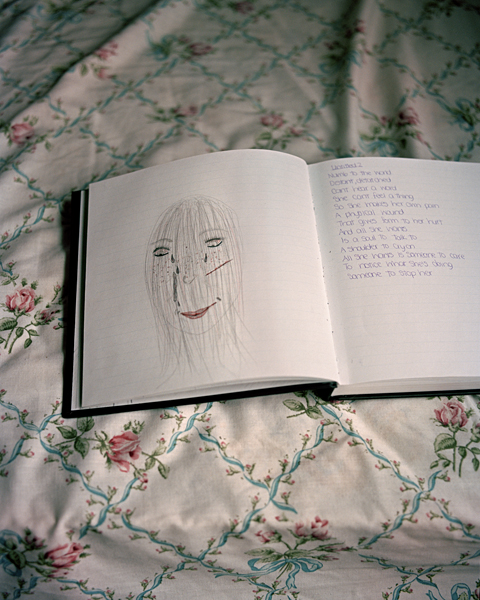 Untitled 2
Numb to the world
Distant, disguised
Cant hear a word
She cant feel a thing
So she makes her own pain
A physical wound
That gives form to her hurt
And all she wants
Is a soul to talk to
A shoulder to cry on
All she wants is someone to care
To notice what she's doing
Someone to stop her